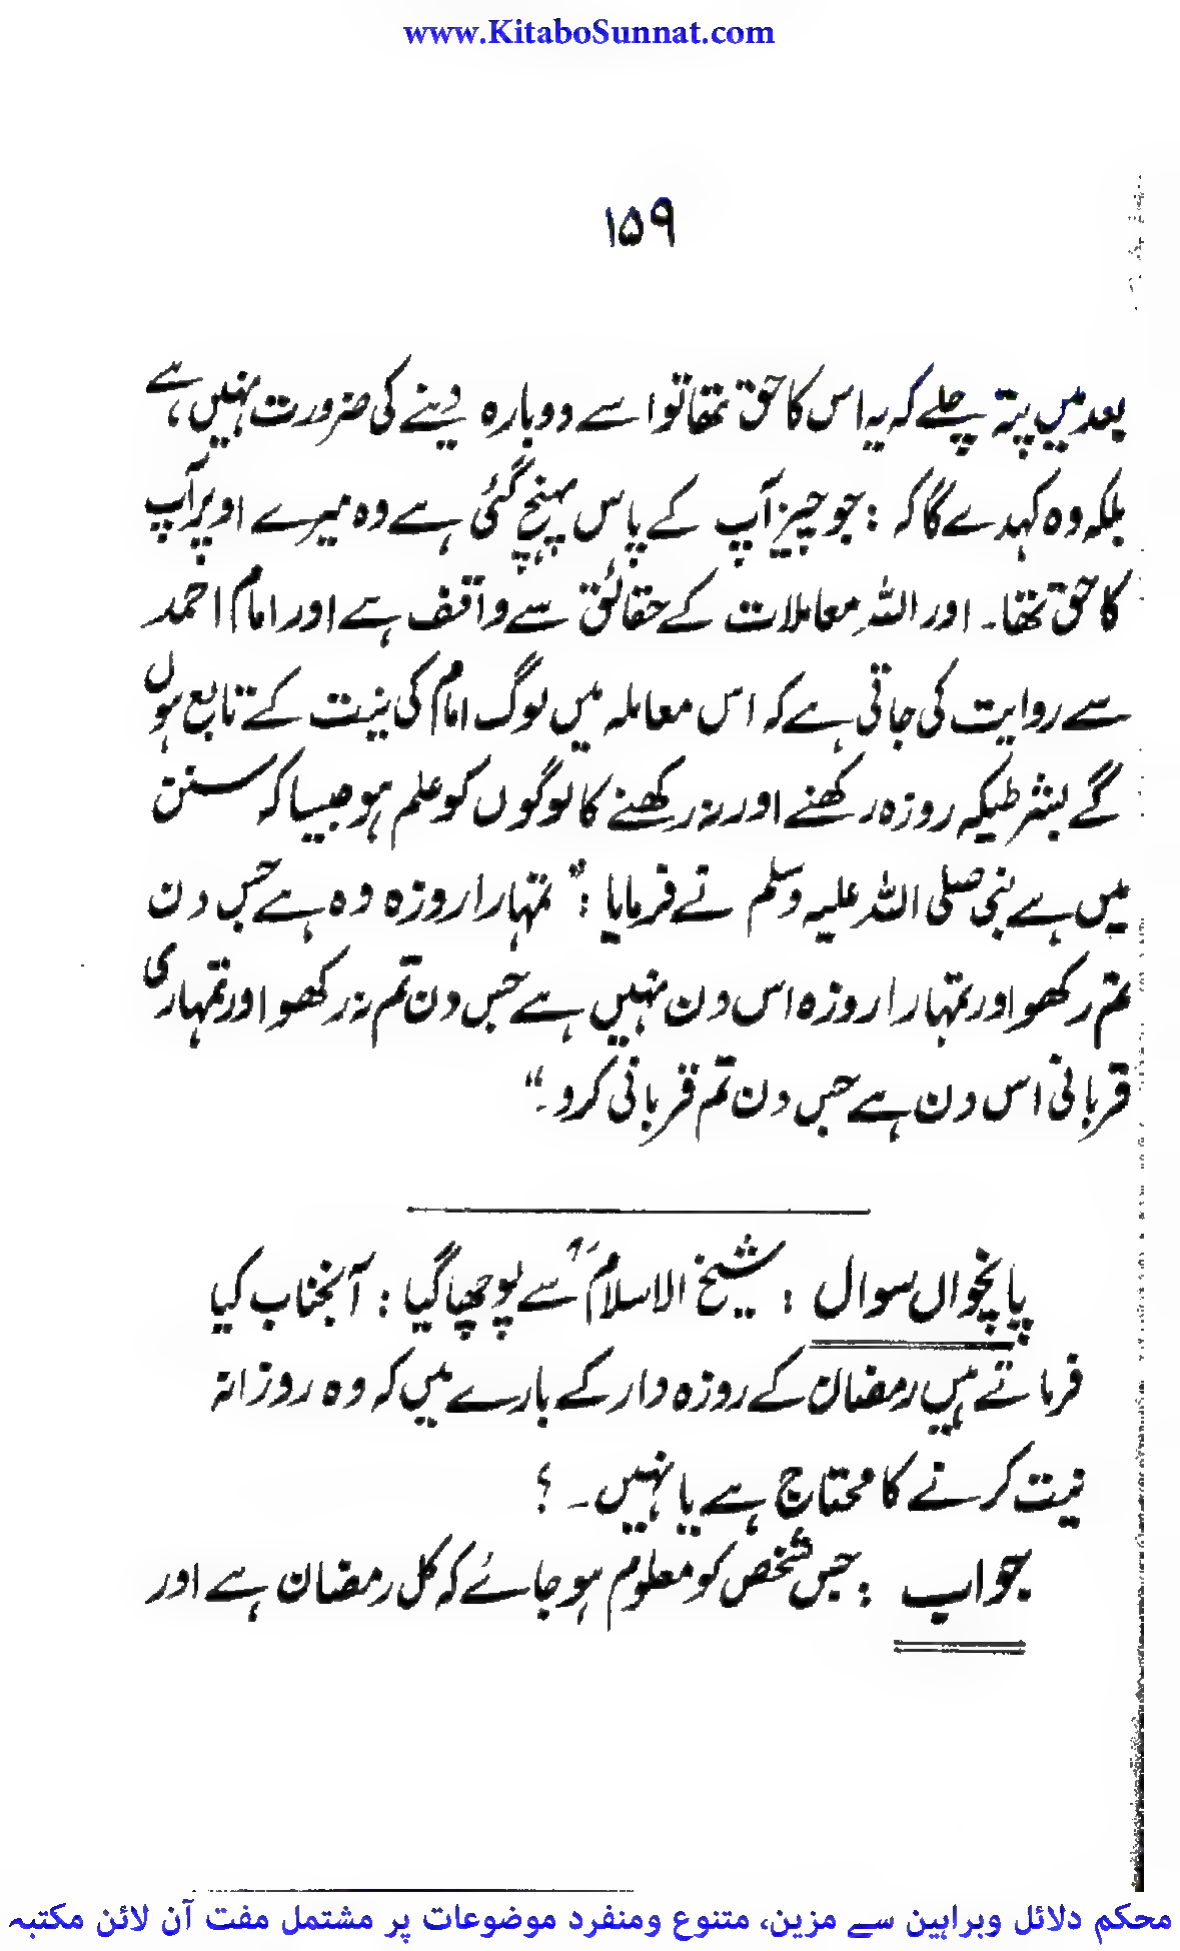 www.KitaboSunnat.com
۱۵۹
بعد میں پتہ چلے کہ یہ اس کا حق تھا تو اسے دوبارہ دینے کی ضرورت نہیں ہے
بلکہ وہ کہدے گا کہ : جو چیز آپ کے پاس پہنچ گئی ہے وہ میرے اوپر آپ
کا حق تھا۔ اور اللہ معاملات کے حقائق سے واقف ہے اور امام احمد
سے روایت کی جاتی ہے کہ اس معاملہ میں لوگ امام کی نیت کے تابع ہوں
گے بشرطیکہ روزہ رکھنے اور نہ رکھنے کا لوگوں کو علم ہو جیسا کہ سنن
میں ہے نبی صلی اللہ علیہ وسلم نے فرمایا : "تمہارا روزہ وہ ہے جس دن
تم رکھو اور تمہارا روزہ اس دن نہیں ہے جس دن تم نہ رکھو اور تمہاری
قربانی اس دن ہے جس دن تم قربانی کرو۔"
پانچواں سوال : شیخ الاسلامؒ سے پوچھا گیا : آنجناب کیا
فرماتے ہیں رمضان کے روزہ دار کے بارے میں کہ وہ روزانہ
نیت کرنے کا محتاج ہے یا نہیں۔ ؟
جواب : جس شخص کو معلوم ہو جائے کہ کل رمضان ہے اور
محکم دلائل وبراہین سے مزین، متنوع ومنفرد موضوعات پر مشتمل مفت آن لائن مکتبہ